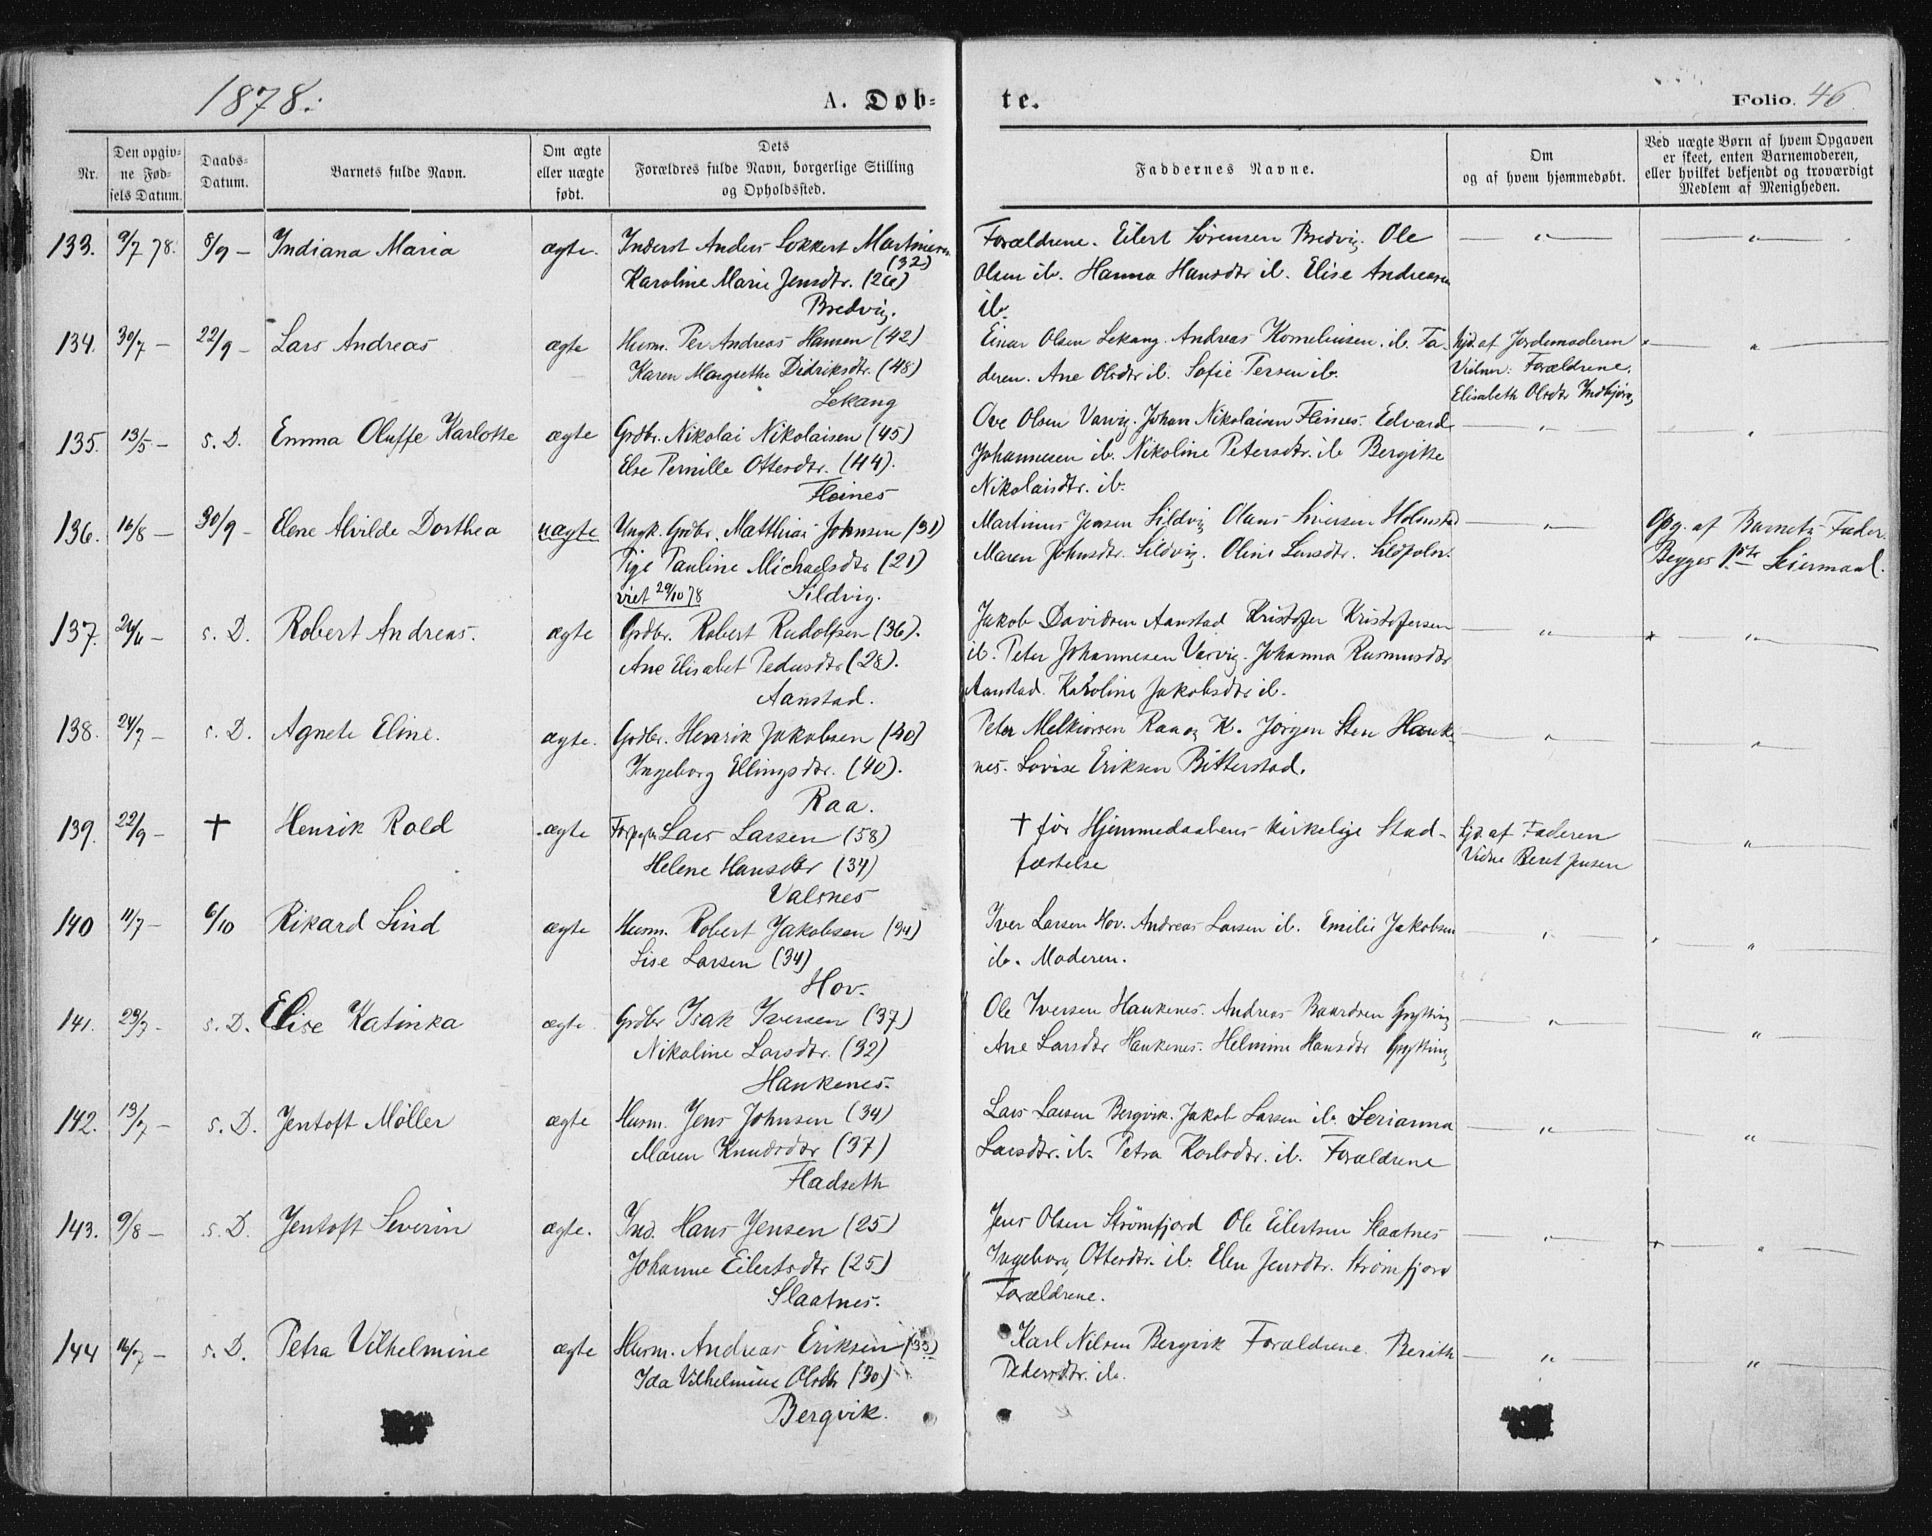 1878.
A. Døb-
te.
Folio. 46.
Nr.
Den opgiv-
ne Fød-
sels Datum.
Daabs-
Datum.
Barnets fulde Navn.
Om ægte
eller uægte
født.
Dets
Forældres fulde Navn, borgerlige Stilling
og Opholdssted.
Faddernes Navne.
Om
og af hvem hjemmedøbt.
Ved uægte Børn af hvem Opgaven
er skeet, enten Barnemoderen,
eller hvilket bekjendt og troværdigt
Medlem af Menigheden.
133. 9/7 78. 8/9 – Indiana Maria ægte. Inderst Anders Lokkert Martinsen
(32)
Karoline Marie Jensdtr. (26)
Bredvig.
Forældrene. Eilert Sørensen Bredvig. Ole
Olsen ib. Hanna Hansdtr ib. Elise Andreasen
ib.
134. 30/7 – 22/9 – Lars Andreas ægte Husm. Per Andreas Hansen (42)
Karen Margrethe Didriksdtr. (48)
Lekang
Einar Olsen Lekang. Andreas Korneliusen. ib. Fa-
deren. Ane Olsdtr ib. Sofie Persen ib.
hjd. af Jordemoderen
Vidner: Forældrene.
Elisabeth Olsdtr
135. 13/5 – s. D. Emma Oluffe Karlotte ægte Grdbr. Nikolai Nikolaisen (45)
Else Pernille Ottersdtr. (44).
Fleines
Ove Olsen Varvig. Johan Nikolaisen Fleines. Edvard
Johannesen ib. Nikoline Petersdtr. ib Bergitte
Nikolaisdtr. ib.
136. 16/8 – 30/9 – Elene Alvilde Dorthea uægte Ungk. Grdbr. Matthias Johnsen (31)
Pige Pauline Michaelsdtr (21)
viet 29/10 78 Sildvig.
Martinus Jensen Sildvig Olaus Siversen Holmstad
Maren Johnsdtr. Sildvig. Oline Larsdtr. Sildpoln.
Opg. af Barnets Fader.
Begges 1ste Leiermaal.
137. 24/6 – s. D. Robert Andreas. ægte Grdbr. Robert Rudolfsen (36).
Ane Elisabet Pedersdtr (28).
Aanstad.
Jakob Davidsen Aanstad Kristofer Kristofersen
ib. Peter Johannesen Varvig. Johanna Rasmusdtr
Aanstad. Karoline Jakobsdtr ib.
138. 24/7 – s. D. Agnete Eline. ægte. Grdbr. Henrik Jakobsen (40)
Ingeborg Ellingsdtr. (40).
Raa.
Peter Melkiorsen Raa og K. Jørgen Sten Hauk-
nes. Lovise Eriksen Bitterstad.
139. 22/9 – † Henrik Rold ægte Lars Larsen (58)
Helene Hansdtr (34)
Valsnes
† før Hjemmedaabens kirkelige Stad-
fæstelse
hjd. af Faderen
Vidne Beret Jensen
140 11/7 – 6/10 Rikard Lind ægte Husm. Robert Jakobsen (34)
Lise Larsen (34)
Hov.
Iver Larsen Hov. Andreas Larsen ib. Emilie Jakobsen
ib. Moderen.
141. 29/7 – s. D. Elise Katinka ægte. Grdbr Isak Iversen (37)
Nikoline Larsdtr. (32)
Haukenes.
Ole Iversen Haukenes. Andreas Baardsen Grytting
Ane Larsdtr Haukenes. Helmine Hansdtr Grytting
142. 13/7 – s. D. Jentoft Møller ægte Husm. Jens Johnsen (34)
Maren Knudsdtr (37)
Fladseth
Lars Larsen Bergvik. Jakob Larsen ib. Serianna
Larsdtr. ib. Petra Karlsdtr. ib. Forældrene
143. 9/8 – s. D. Jentoft Severin ægte. Ind. Hans Jensen (25)
Johanne Eilertsdtr (25)
Slaatnes.
Jens Olsen Strømfjord Ole Eilertsen Slaatnes
Ingeborg Ottersdtr. ib. Elen Jensdtr. Strømfjord
Forældrene.
144 16/7 – s. D. Petra Vilhelmine ægte Husm. Andreas Eriksen (33)
Ida Vilhelmine Olsdtr (30)
Bergvik.
Karl Nilsen Bergvik Forældrene. Berith
Pedersdtr. ib.